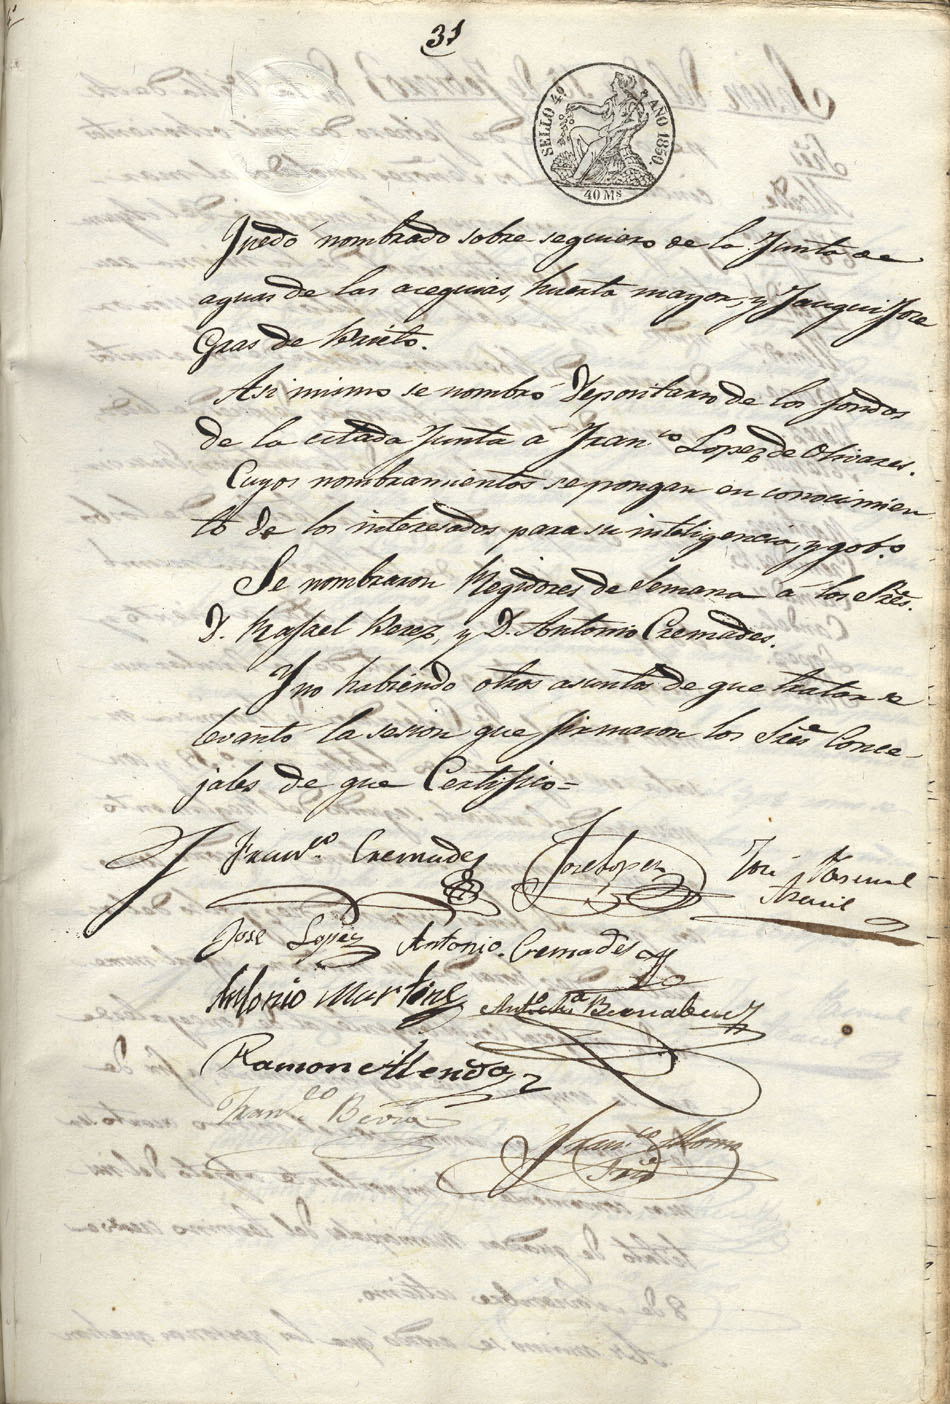 31
SELLO 4º AÑO 1850
40 Ms
Quedó nombrado sobreseguiero de la Junta de
aguas de las acequias, huerta mayor, y Jauqui Jose
Gras de Benito.
Asi mismo se nombró Depositario de los fondos
de la citada Junta á Franco Lopez de Olivares.
Cuyos nombramientos se pongan en conocimien
to de los interesados para su inteligencia, y gobo
Se nombraron Regidores de Semana á los Sres.
D. Rafael Perez, y D. Antonio Cremades.
Y no habiendo otros asuntos de que tratar se
levanto la sesion que firmaron los Sres Conce-
jales de que Certifico=
Franco. Cremades
Jose Lopez
José Pascual
Jose Lopez
Antonio Cremades
Antonio Martinez
Anto Ma Bernabeu
Ramon Allenda
Franco Bevia
Franco